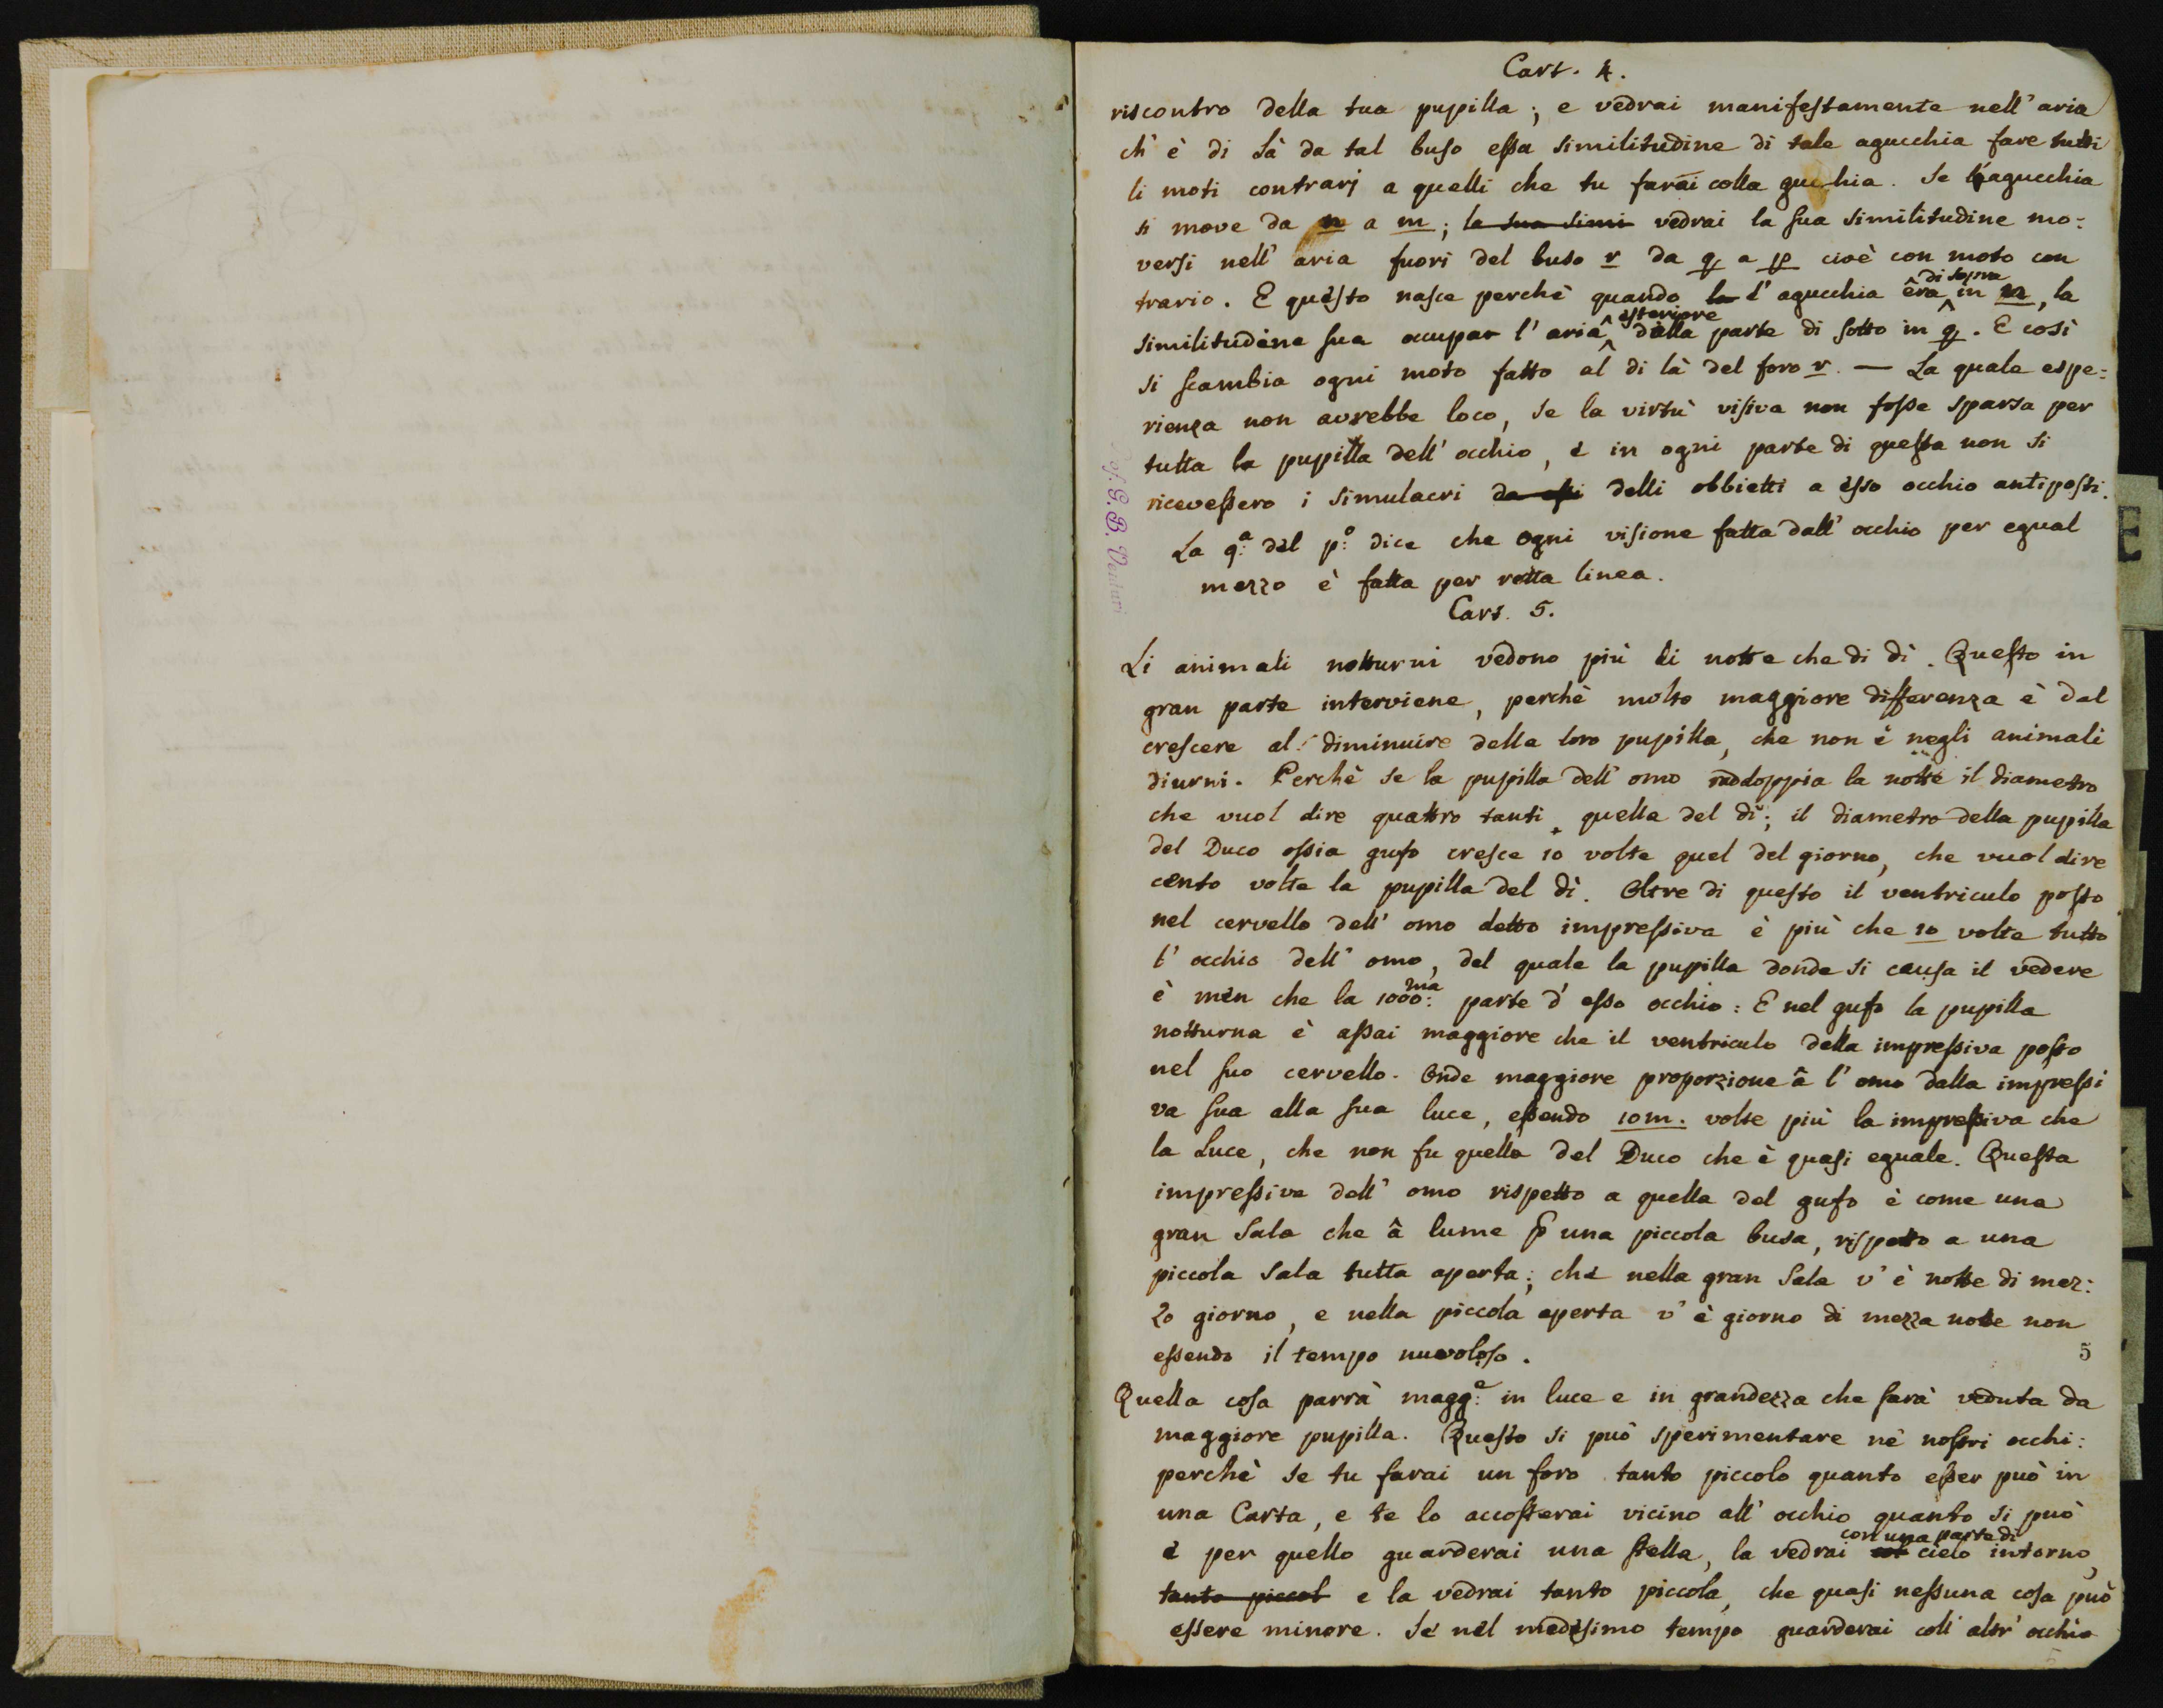 Cart. 4.
riscontro della tua pupilla; e vedrai manifestamente nell' aria
ch' è di là da tal buso essa similitudine di tale agucchia fare tutti
li moti contrarj a quelli che tu farai colla guchia. Se l'agucchia
si move da n a m; la sua simi vedrai la sua similitudine mo=
versi nell' aria fuori del buso r da q a p cioè con moto con
trario. E questo nasce perchè quando la l' agucchia êra di sopra in n, la
similitudine sua occupar l' aria esteriore dalla parte di sotto in q. E così
si scambia ogni moto fatto al di là del foro r. — La quale espe=
rienza non avrebbe loco, se la virtù visiva non fosse sparsa per
tutta la pupilla dell' occhio, e in ogni parte di questa non si
ricevessero i simulacri da essi delli obbietti a esso occhio antiposti.
La 9.a del p.o dice che ogni visione fatta dall' occhio per egual
mezzo è fatta per retta linea.
Cart. 5.
Li animali notturni vedono più di notte che di dì. Questo in
gran parte interviene, perchè molto maggiore differenza è dal
crescere al diminuire della loro pupilla, che non è negli animali
diurni. Perchè se la pupilla dell' omo raddoppia la notte il diametro
che vuol dire quattro tanti quella del dì; il diametro della pupilla
del Duco ossia gufo cresce 10 volte quel del giorno, che vuol dire
cento volte la pupilla del dì. Oltre di questo il ventriculo posto
nel cervello dell' omo detto impressiva è più che 10 volte tutto
l' occhio dell' omo, del quale la pupilla donde si causa il vedere
è men che la 1000:ma parte d' esso occhio: E nel gufo la pupilla
notturna è assai maggiore che il ventriculo della impressiva posto
nel suo cervello. Onde maggiore proporzione â l' omo dalla impressi
va sua alla sua luce, essendo 10m. volte più la impressiva che
la Luce, che non fu quella del Duco che è quasi eguale. Questa
impressiva dell' omo rispetto a quella del gufo è come una
gran Sala che â lume p una piccola busa, rispetto a una
piccola Sala tutta aperta; che nella gran Sala v' è notte di mez:
zo giorno, e nella piccola aperta v' è giorno di mezza notte non
essendo il tempo nuvoloso.
5
Quella cosa parrà magg:e in luce e in grandezza che sarà veduta da
maggiore pupilla. Questo si può sperimentare nè nostri occhi:
perchè se tu farai un foro tanto piccolo quanto esser può in
una Carta, e te lo accosterai vicino all' occhio quanto si può
e per quello guarderai una stella, la vedrai col con una parte di cielo intorno,
tanto piccol e la vedrai tanto piccola, che quasi nessuna cosa può
essere minore. Se nel medesimo tempo guarderai coll' altr' occhio
5
of. G. B. Venturi